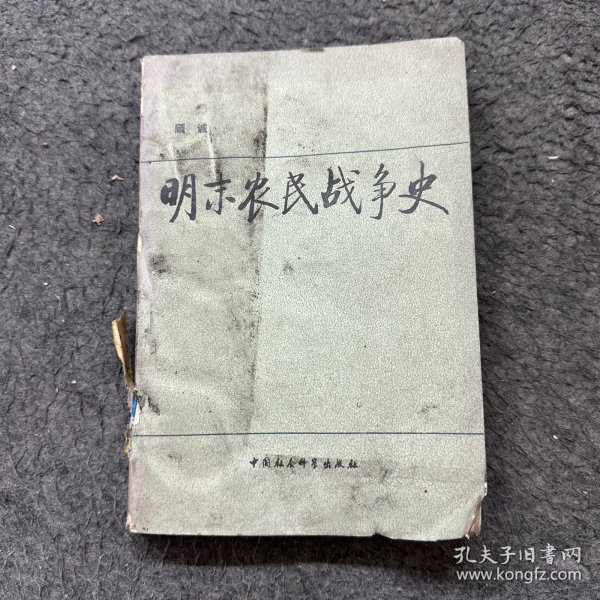 顾诚
明末农民战争史
中国社会科学出版社
孔夫子旧書网
www.kongfz.com